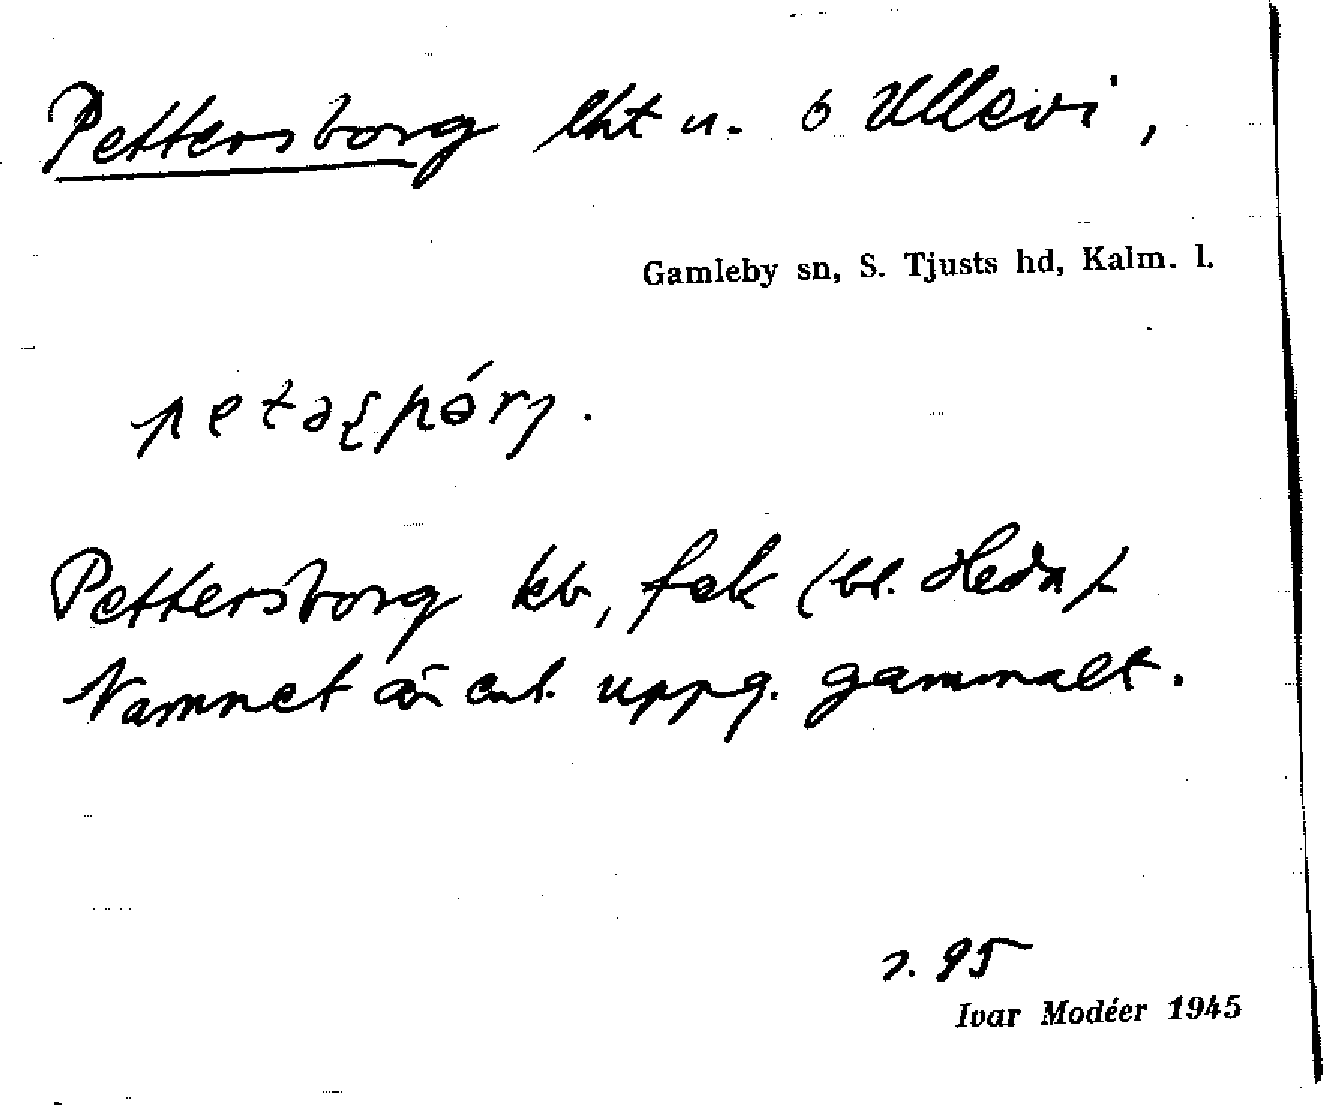 Pettersborg lht u. ö Ullevi,
Gamleby sn, S. Tjusts hd, Kalm. l.
Pettersborg kb, fek (bl.
Namnet är enl. uppg. gammalt.
s. 95
Ivar Modéer 1945